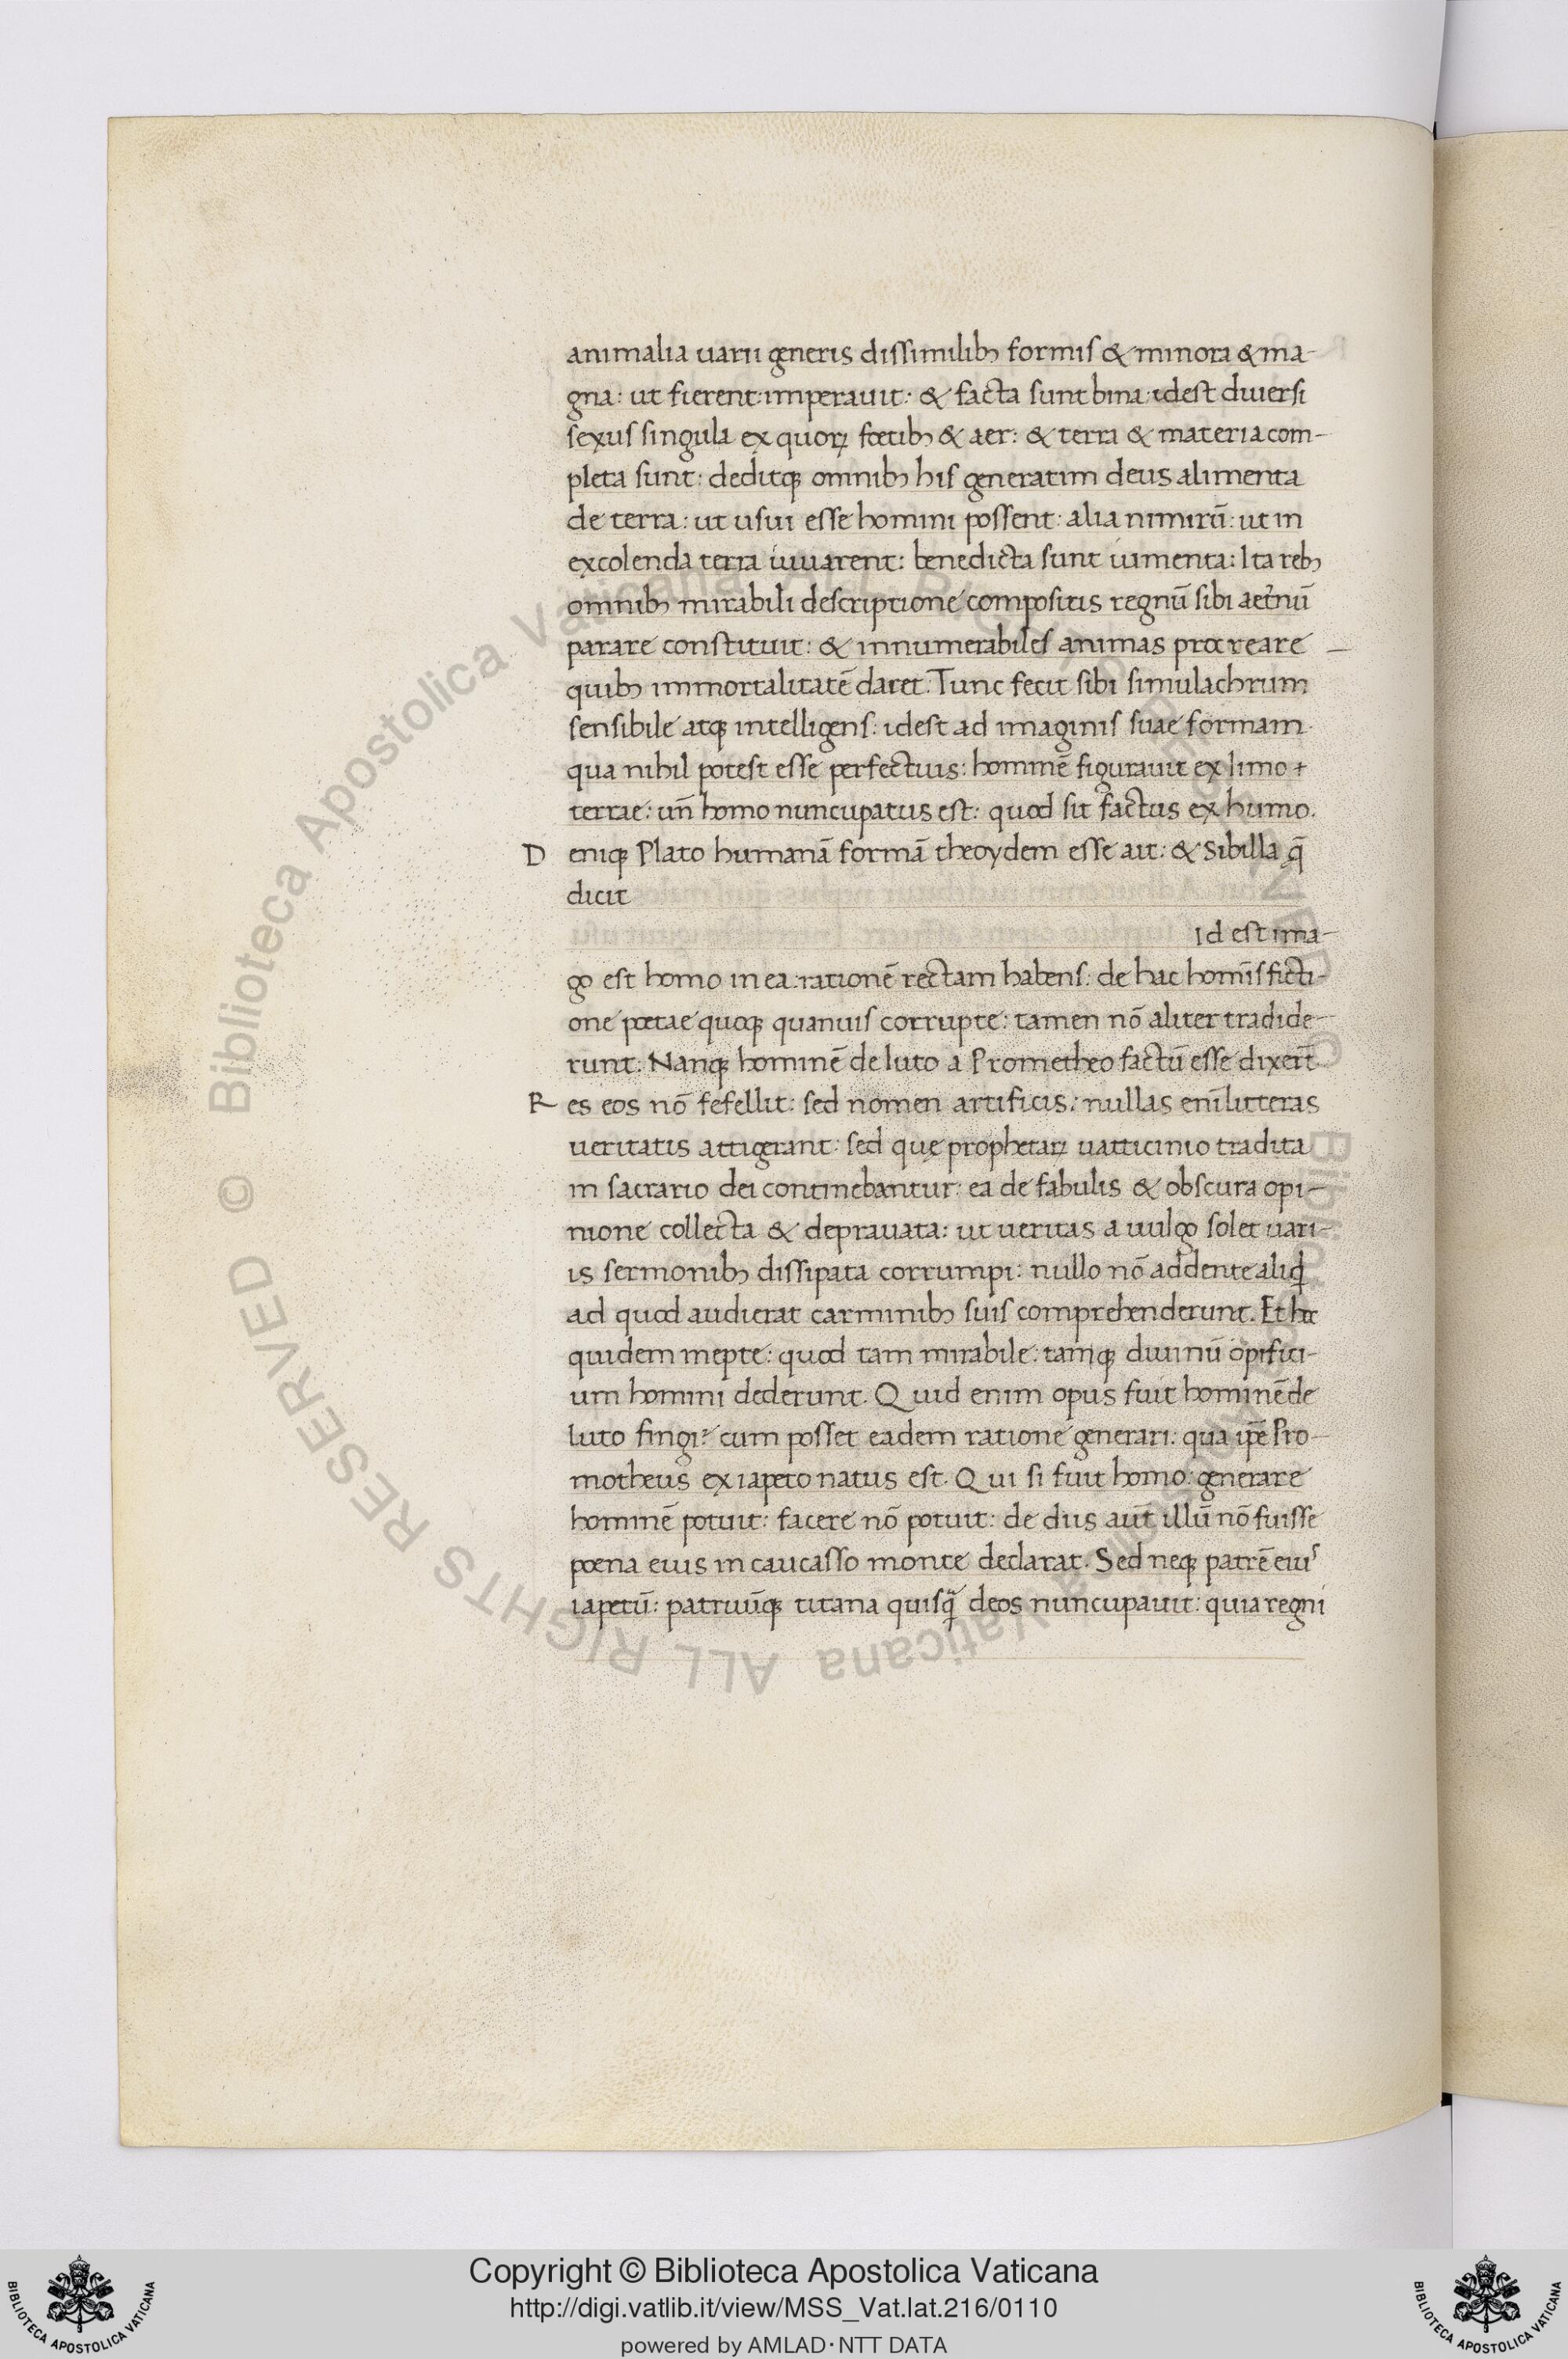 animalia uarii generis dissimilibꝫ formis & minora & ma-
gna: ut fierent: imperauit: & facta sunt bina: idest diuersi
sexus singula ex quoꝝ fœtibꝫ & aer: & terra & materia com-
pleta sunt: deditqꝫ omnibꝫ his generatim deus alimenta
de terra: ut usui esse homini possent: alia nimirū: ut in
excolenda terra iuuarent: benedicta sunt iumenta: Ita rebꝫ
omnibꝫ mirabili descriptione compositis regnū sibi aet̄nū
parare constituit: & innumerabiles animas procreare —
quibꝫ immortalitatē daret. Tunc fecit sibi simulachrum
sensibile atqꝫ intelligens: idest ad imaginis suae formam
qua nihil potest esse perfectius: hominē figurauit ex limo +
terrae: un̄ homo nuncupatus est: quod sit factus ex humo.
Deniqꝫ Plato humanā formā theoydem esse ait: & Sibilla q̄
dicit
Id est ima-
go est homo in ea: rationē rectam habens: de hac homīs ficti-
one pœtae quoqꝫ quanuis corrupte: tamen nō aliter tradide-
runt: Nanqꝫ hominē de luto a Prometheo factū esse dixer̄t
Res eos nō fefellit: sed nomen artificis: nullas enī litteras
ueritatis attigerant: sed quę prophetaꝝ uatticinio tradita
in sacrario dei continebantur: ea de fabulis & obscura opi-
nione collecta & deprauata: ut ueritas a uulgo solet uari-
is sermonibꝫ dissipata corrumpi: nullo nō addente aliqd
ad quod audierat carminibꝫ suis comprehenderunt. Et hœc
quidem inepte: quod tam mirabile: tamqꝫ diuinū opifici-
um homini dederunt. Quid enim opus fuit hominē de
luto fingi? cum posset eadem ratione generari: qua ip̄e Pro-
motheus ex iapeto natus est. Qui si fuit homo: generare
hominē potuit: facere nō potuit: de diis aut̄ illū nō fuisse
pœna eius in caucasso monte declarat. Sed neqꝫ patrē eius
iapetū: patruūqꝫ titana quisq̄ deos nuncupauit: quia regni
Copyright © Biblioteca Apostolica Vaticana
http://digi.vatlib.it/view/MSS_Vat.lat.216/0110
powered by AMLAD·NTT DATA
BIBLIOTECA APOSTOLICA VATICANA
BIBLIOTECA APOSTOLICA VATICANA
Biblioteca Apostolica Vaticana ALL RIGHTS RESERVED ©
Biblioteca Apostolica Vaticana ALL RIGHTS RESERVED ©